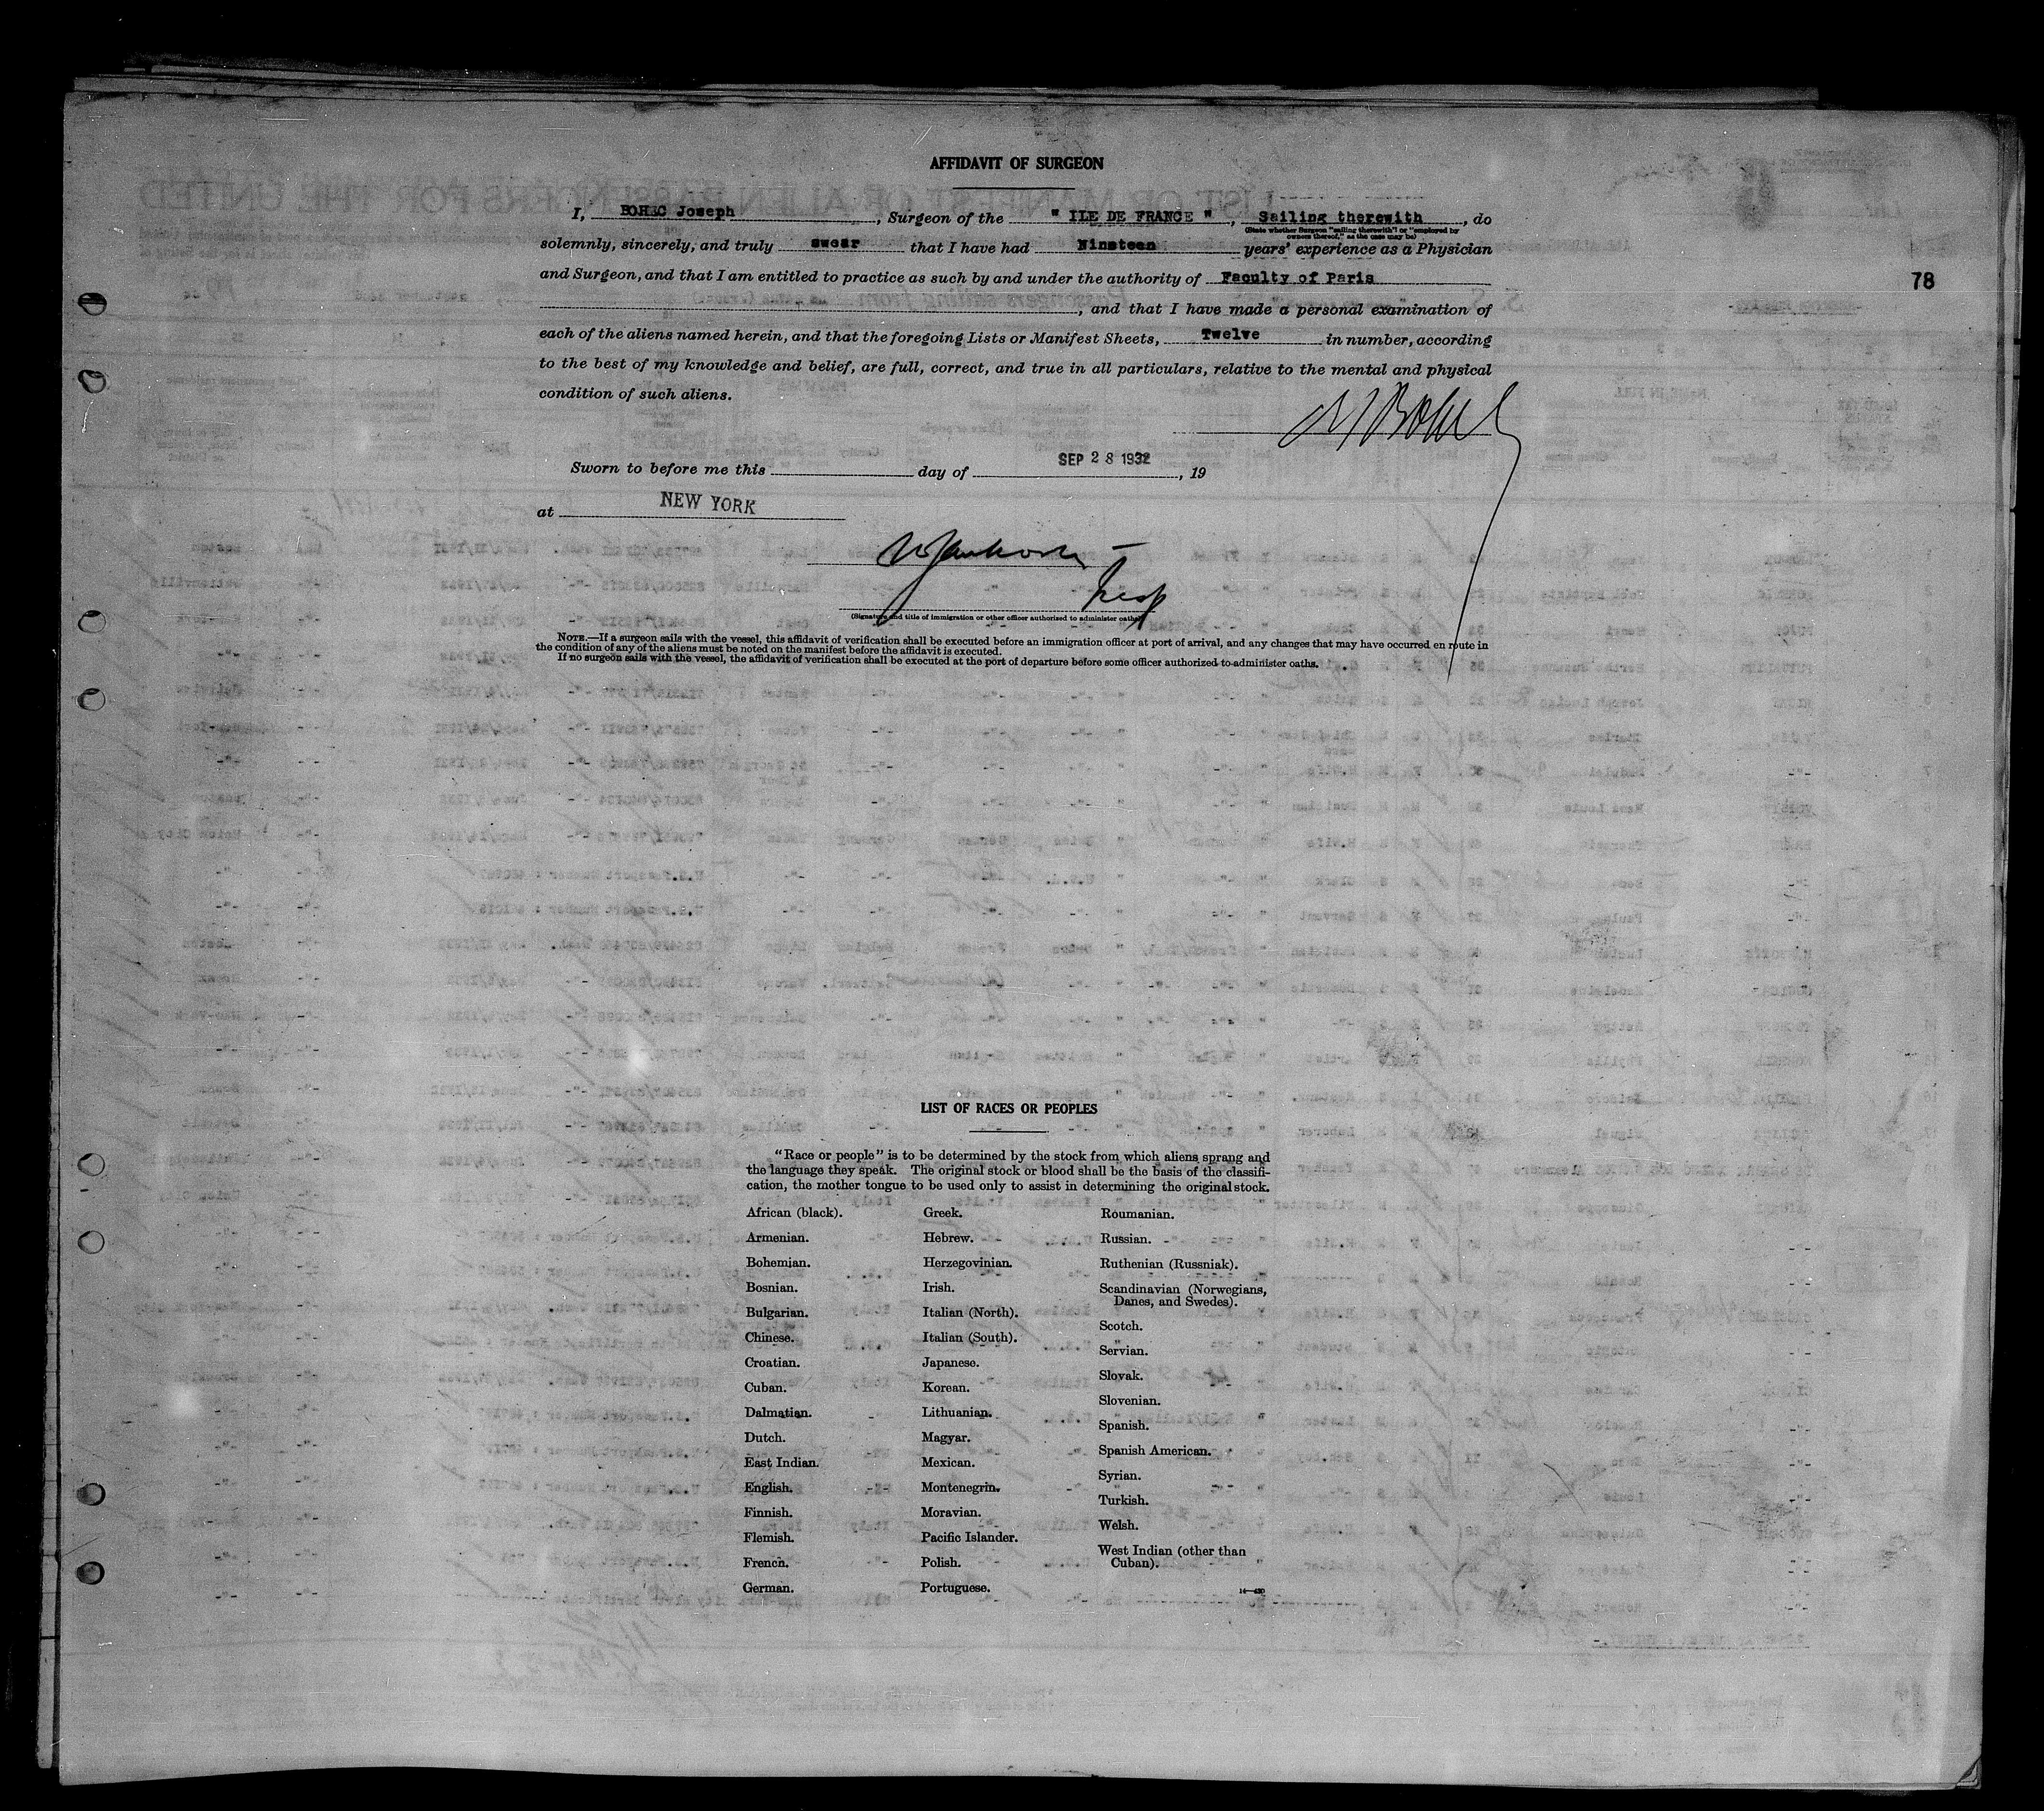 AFFIDAVIT OF SURGEON
I, BOHEC Joseph, Surgeon of the " ILE DE FRANCE ", Sailing therewith, do
(State whether Surgeon "sailing therewith" or "employed by
owners thereof," as the case may be)
solemnly, sincerely, and truly swear that I have had Nineteen years' experience as a Physician
and Surgeon, and that I am entitled to practice as such by and under the authority of Faculty of Paris
78
, and that I have made a personal examination of
each of the aliens named herein, and that the foregoing Lists or Manifest Sheets, Twelve in number, according
to the best of my knowledge and belief, are full, correct, and true in all particulars, relative to the mental and physical
condition of such aliens.
Sworn to before me this day of SEP 28 1932, 19
at NEW YORK
Insp
(Signature and title of immigration or other officer authorized to administer oaths)
NOTE.—If a surgeon sails with the vessel, this affidavit of verification shall be executed before an immigration officer at port of arrival, and any changes that may have occurred en route in
the condition of any of the aliens must be noted on the manifest before the affidavit is executed.
If no surgeon sails with the vessel, the affidavit of verification shall be executed at the port of departure before some officer authorized to administer oaths.
LIST OF RACES OR PEOPLES
"Race or people" is to be determined by the stock from which aliens sprang and
the language they speak. The original stock or blood shall be the basis of the classifi-
cation, the mother tongue to be used only to assist in determining the original stock.
African (black).
Armenian.
Bohemian.
Bosnian.
Bulgarian.
Chinese.
Croatian.
Cuban.
Dalmatian.
Dutch.
East Indian.
English.
Finnish.
Flemish.
French.
German.
Greek.
Hebrew.
Herzegovinian.
Irish.
Italian (North).
Italian (South).
Japanese.
Korean.
Lithuanian.
Magyar.
Mexican.
Montenegrin.
Moravian.
Pacific Islander.
Polish.
Portuguese.
Roumanian.
Russian.
Ruthenian (Russniak).
Scandinavian (Norwegians,
Danes, and Swedes).
Scotch.
Servian.
Slovak.
Slovenian.
Spanish.
Spanish American.
Syrian.
Turkish.
Welsh.
West Indian (other than
Cuban).
14—430